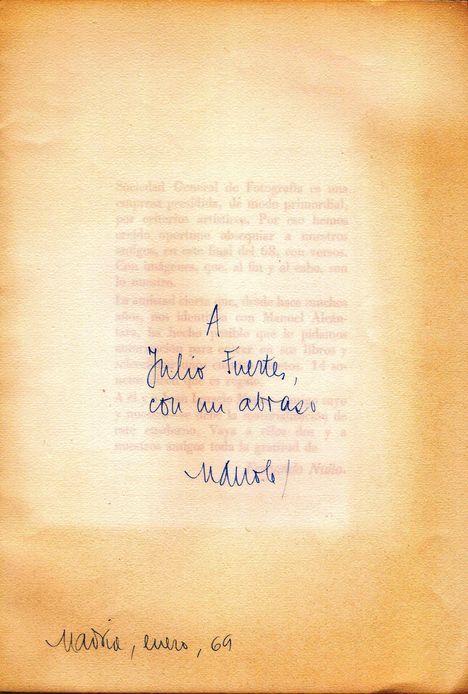 Sociedad General de Fotografía es una
empresa presidida, de modo primordial,
por criterios artísticos. Por eso hemos
creído oportuno obsequiar a nuestros
amigos, en este final del 68, con versos.
Con imágenes, que, al fin y al cabo, son
lo nuestro.
La amistad cierta que, desde hace muchos
años, nos identifica con Manuel Alcán-
tara, ha hecho posible que le pidamos
A
Julio Fuertes,
con un abraso
Manolo
este cuaderno. Vaya a ellos dos y a
nuestros amigos toda la gratitud de
Nuño.
Madrid, enero, 69